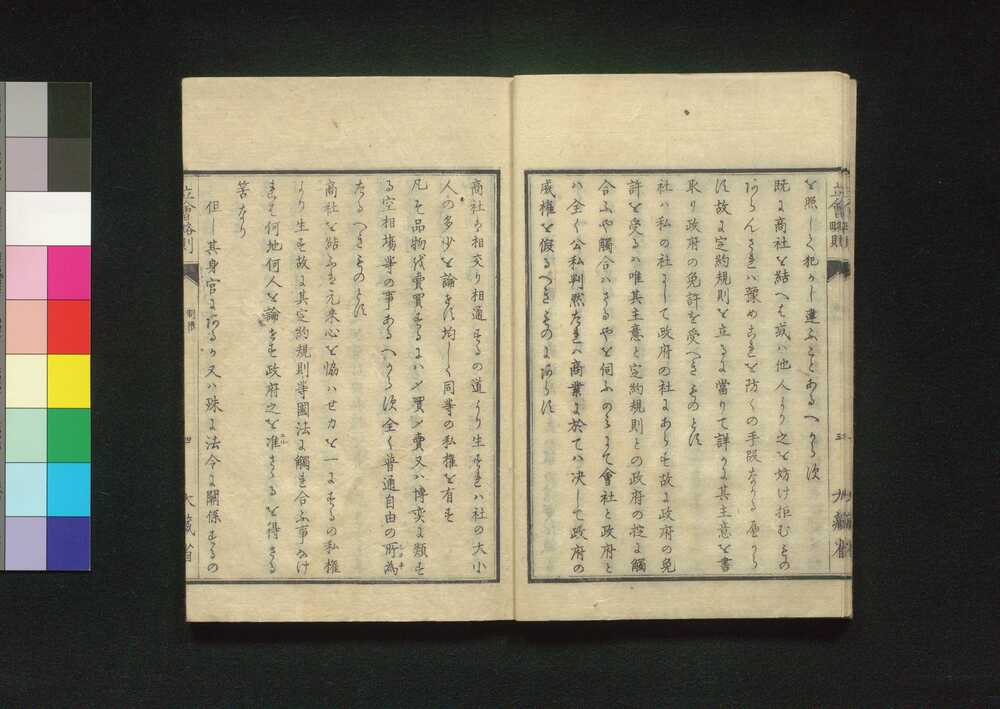 を照して犯かし違ふことあるへからす
既に商社を結へは或ハ他人より之を妨け拒むもの
あらんされハ予めこれを防くの手段なかる可から
す故に定約規則を立るに當りて詳かに其主意を書
取り政府の免許を受へきものとす
社ハ私の社にして政府の社にあらす故に政府の免
許を受るハ唯其主意と定約規則との政府の掟に觸
合ふや觸合ハさるやを伺ふのミにて會社と政府と
ハ全く公私判然たれハ商業に於てハ决して政府の
威權を假るへきものにあらす
立會略則
制限
四
大藏省
商社ハ相交り相通するの道より生すれハ社の大小
人の多少を論せす均しく同等の私權を有す
凡そ品物代賣買するにハメ買メ賣又ハ博奕に類す
る空相場等の事あるへからす全く普通自由の所為
たるへきものとす
商社を結ふは元来心を協ハせ力を一にするの私權
より生す故に其定約規則等國法に觸れ合ふ事なけ
れは何地何人を論せす政府之を准さゝるを得さる
筈なり
但し其身官にあるか又ハ殊に法令に關係するの